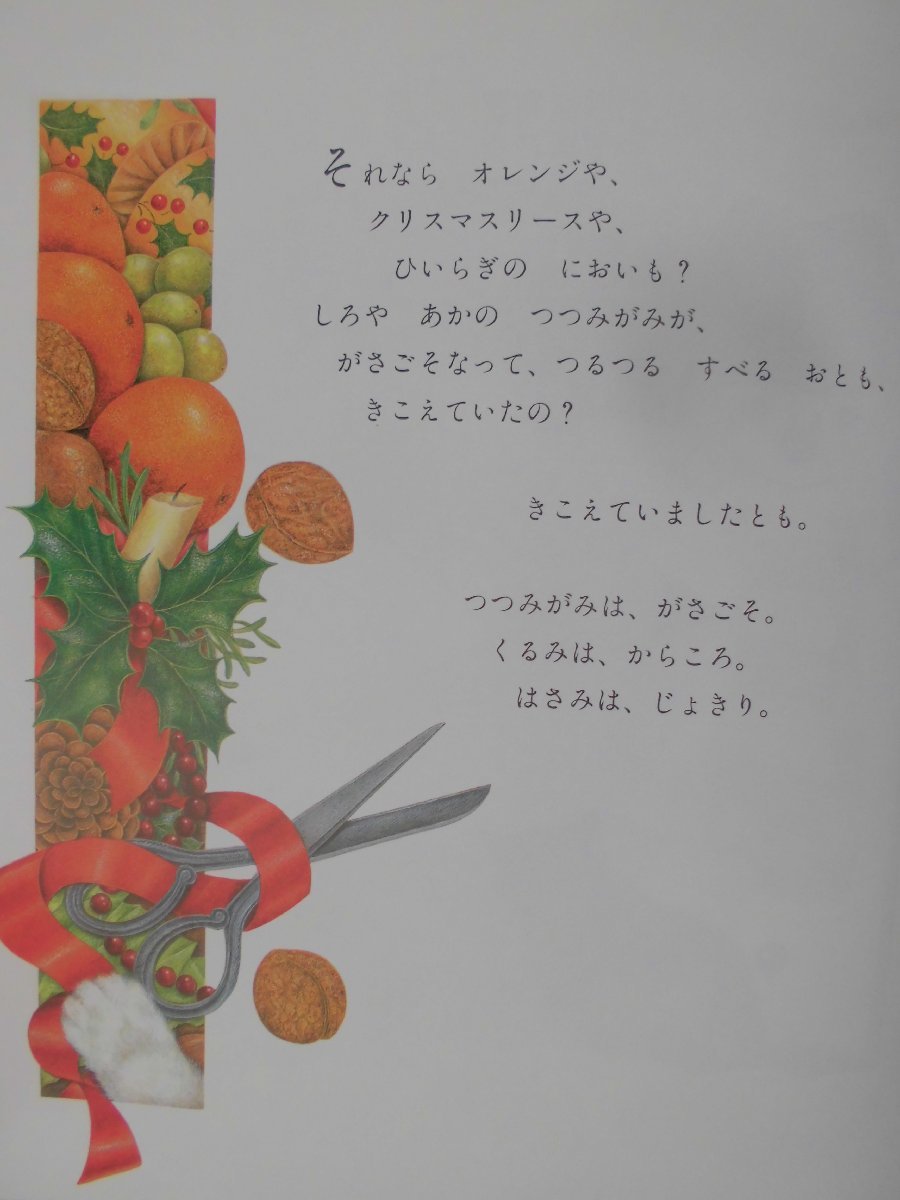 それなら　オレンジや、
クリスマスリースや、
ひいらぎの　においも？
しろや　あかの　つつみがみが、
がさごそなって、つるつる　すべる　おとも、
きこえていたの？
きこえていましたとも。
つつみがみは、がさごそ。
くるみは、からころ。
はさみは、じょきり。